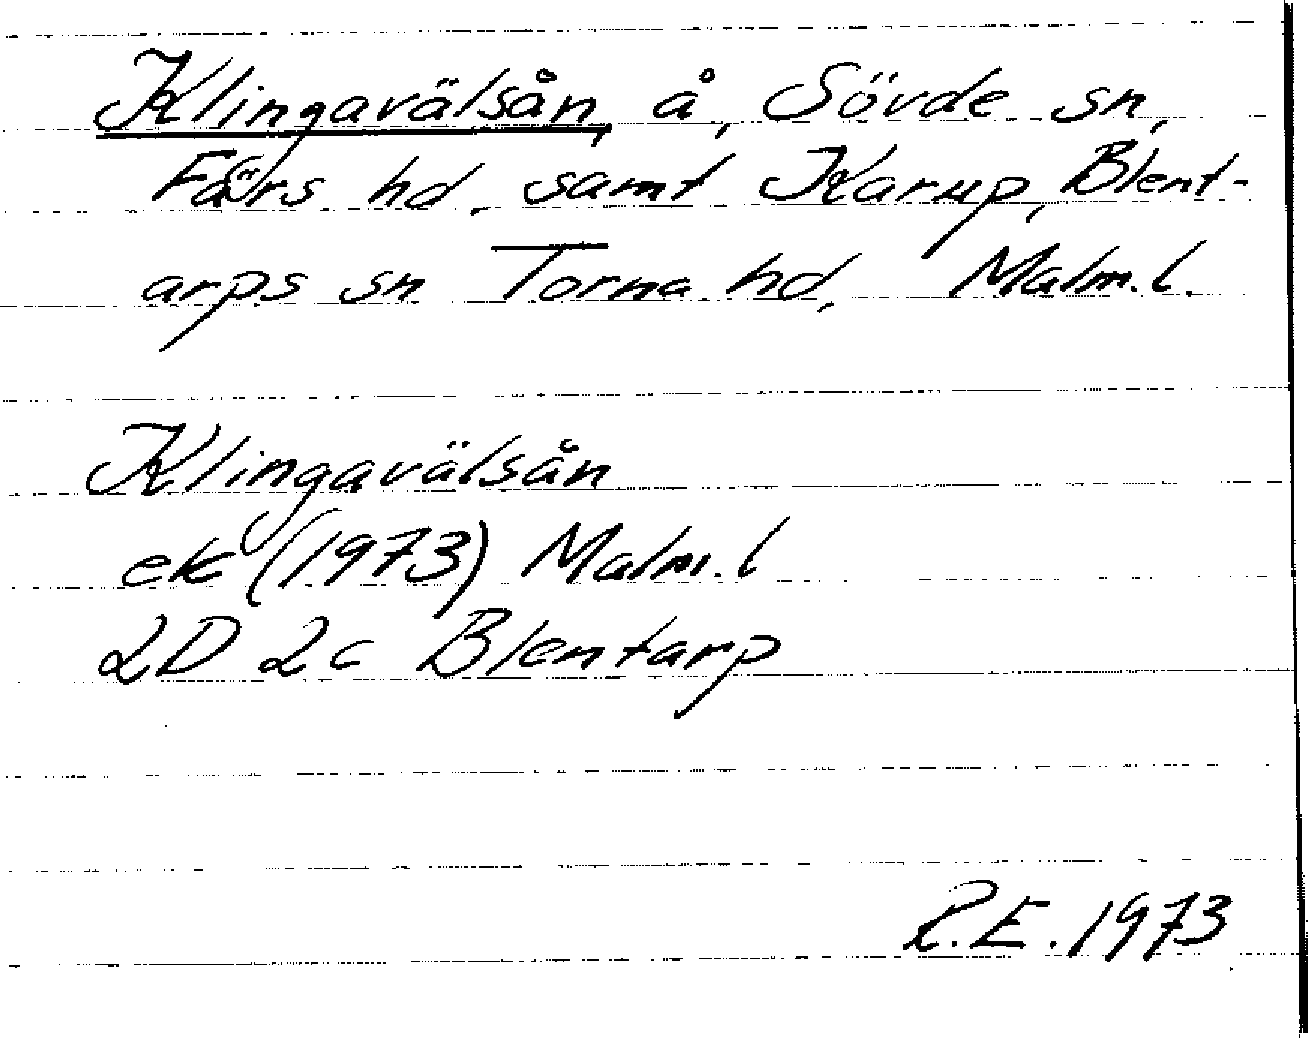 Klingavälsån, å, Sövde sn,
Färs hd, samt Karup, Blent-
arps sn Torna hd, Malm.l.
Klingavälsån
ek (1973) Malm.l
2D 2c Blentarp
R.E. 1973